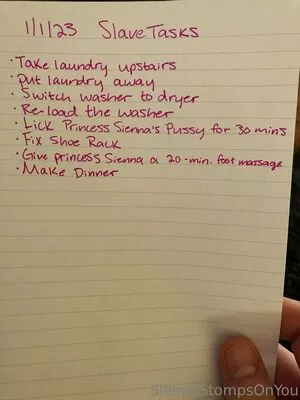 1/1/23 Slave Tasks
· Take laundry upstairs
· Put laundry away
· Switch washer to dryer
· Re-load the washer
· Lick Princess Sienna's Pussy for 30 mins
· Fix Shoe Rack
· Give princess Sienna a 20-min. foot massage
· Make Dinner
SiennaStompsOnYou